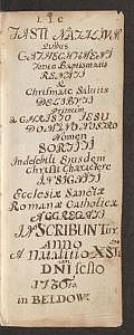 I. I. C.
FASTI NATALIUM
Quibus
CATHECHUMENI
Fonte Baptismatis
RENATI
&
Chrismate Salutis
DELIBUTI
Primum
& CHRISTO IESU
DOMINO NOSTRO
Nomen
SORTITI
Indelebili Ejusdem
Christi Charactere
INSIGNITI
Ecclesiæ Sanctæ
Romanæ Catholicæ
AGGREGATI
INSCRIBUNTur
ANNO
A natalitio
DNI
1736
in BELDOW